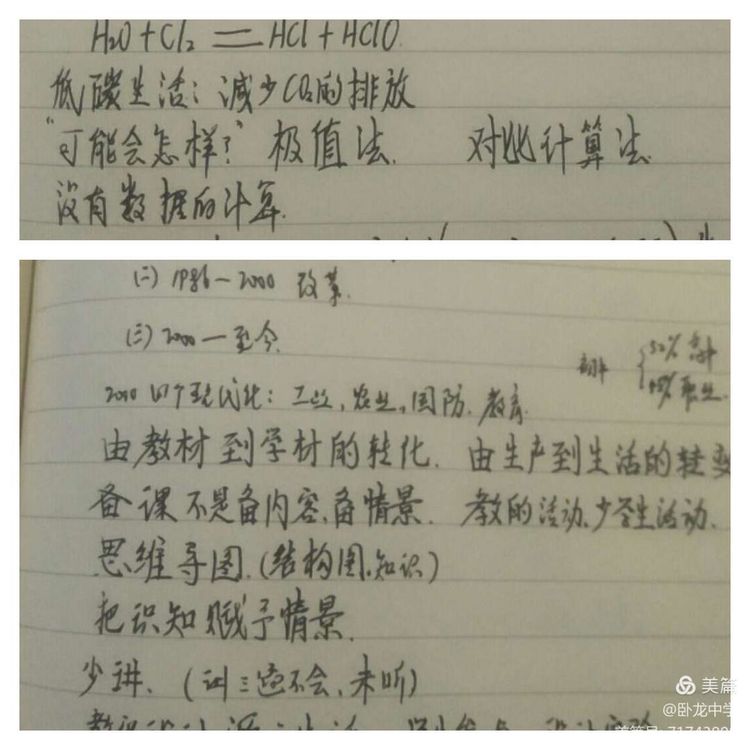 H2O+Cl2 = HCl+HClO
低碳生活：减少CO2的排放
"可能会怎样？" 极值法. 对比计算法.
没有数据的计算.
(二) 1986—2000 改革.
(三) 2000—至今.
50%
2010 四个现代化：工业, 农业, 国防. 教育.
由教材到学材的转化. 由生产到生活的转变
备课不是备内容、备情景. 教的活动、少学生活动、
思维导图.(结构图.知识)
把识知赋予情景.
少讲. (讲三遍不会、未听)
美篇
@卧龙中学